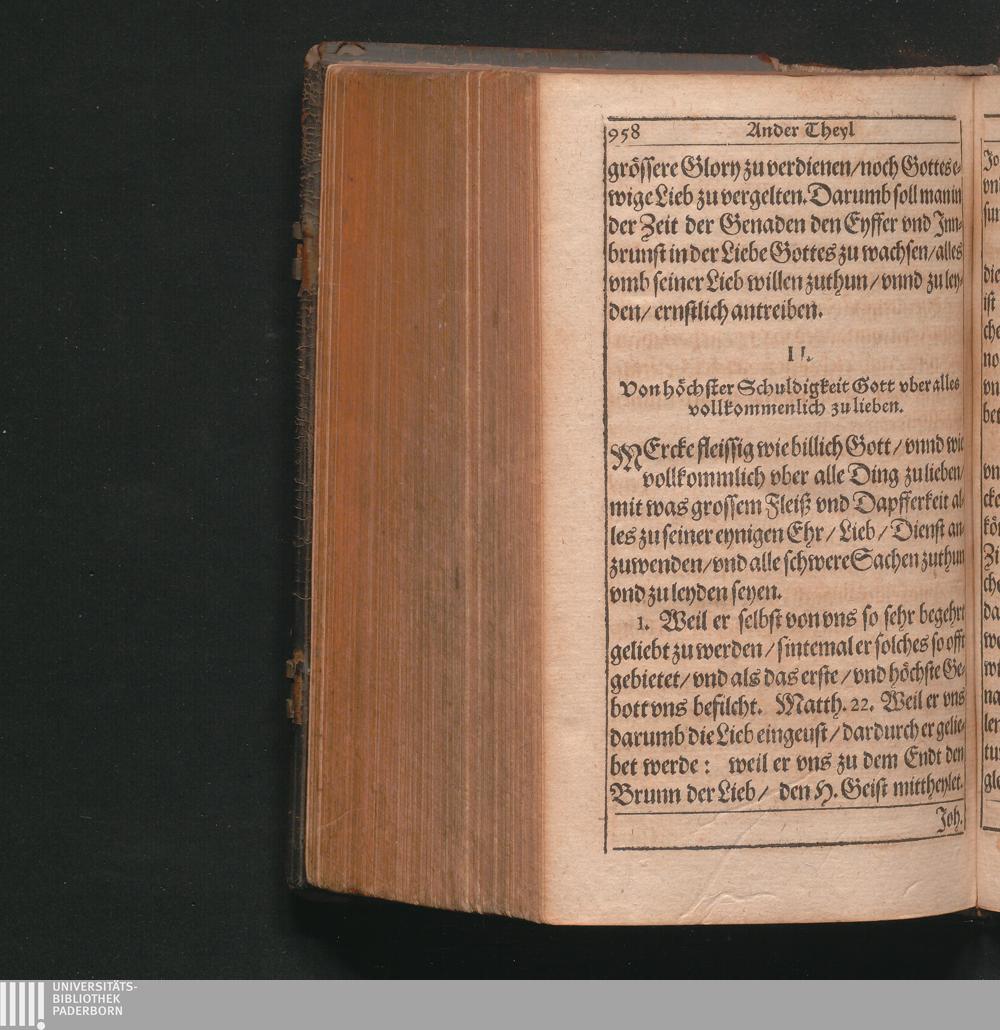 958 Ander Theyl
grössere Glory zu verdienen/noch Gottes e-
wige Lieb zu vergelten. Darumb soll man in
der Zeit der Genaden den Eyffer vnd Inn-
brunst in der Liebe Gottes zu wachsen/alles
vmb seiner Lieb willen zuthun/ vnnd zu ley-
den/ ernstlich antreiben.
II.
Von höchster Schuldigkeit Gott vber alles
vollkommenlich zu lieben.
MErcke fleissig wie billich Gott/ vnnd wie
vollkommlich vber alle Ding zu lieben/
mit was grossem Fleiß vnd Dapfferkeit al-
les zu seiner eynigen Ehr/ Lieb/ Dienst an-
zuwenden/vnd alle schwere Sachen zuthun
vnd zu leyden seyen.
1. Weil er selbst von vns so sehr begehrt
geliebt zu werden/ sintemal er solches so offt
gebietet/ vnd als das erste/ vnd höchste Ge-
bott vns befilcht. Matth. 22. Weil er vns
darumb die Lieb eingeust/ dardurch er gelie-
bet werde: weil er vns zu dem Endt den
Brunn der Lieb/ den H. Geist mittheylet.
Joh.
Jo
vn
die
ist
che
no
vn
bet
vn
cke
Zi
che
da
we
na
ler
gle
UNIVERSITÄTS-
BIBLIOTHEK
PADERBORN